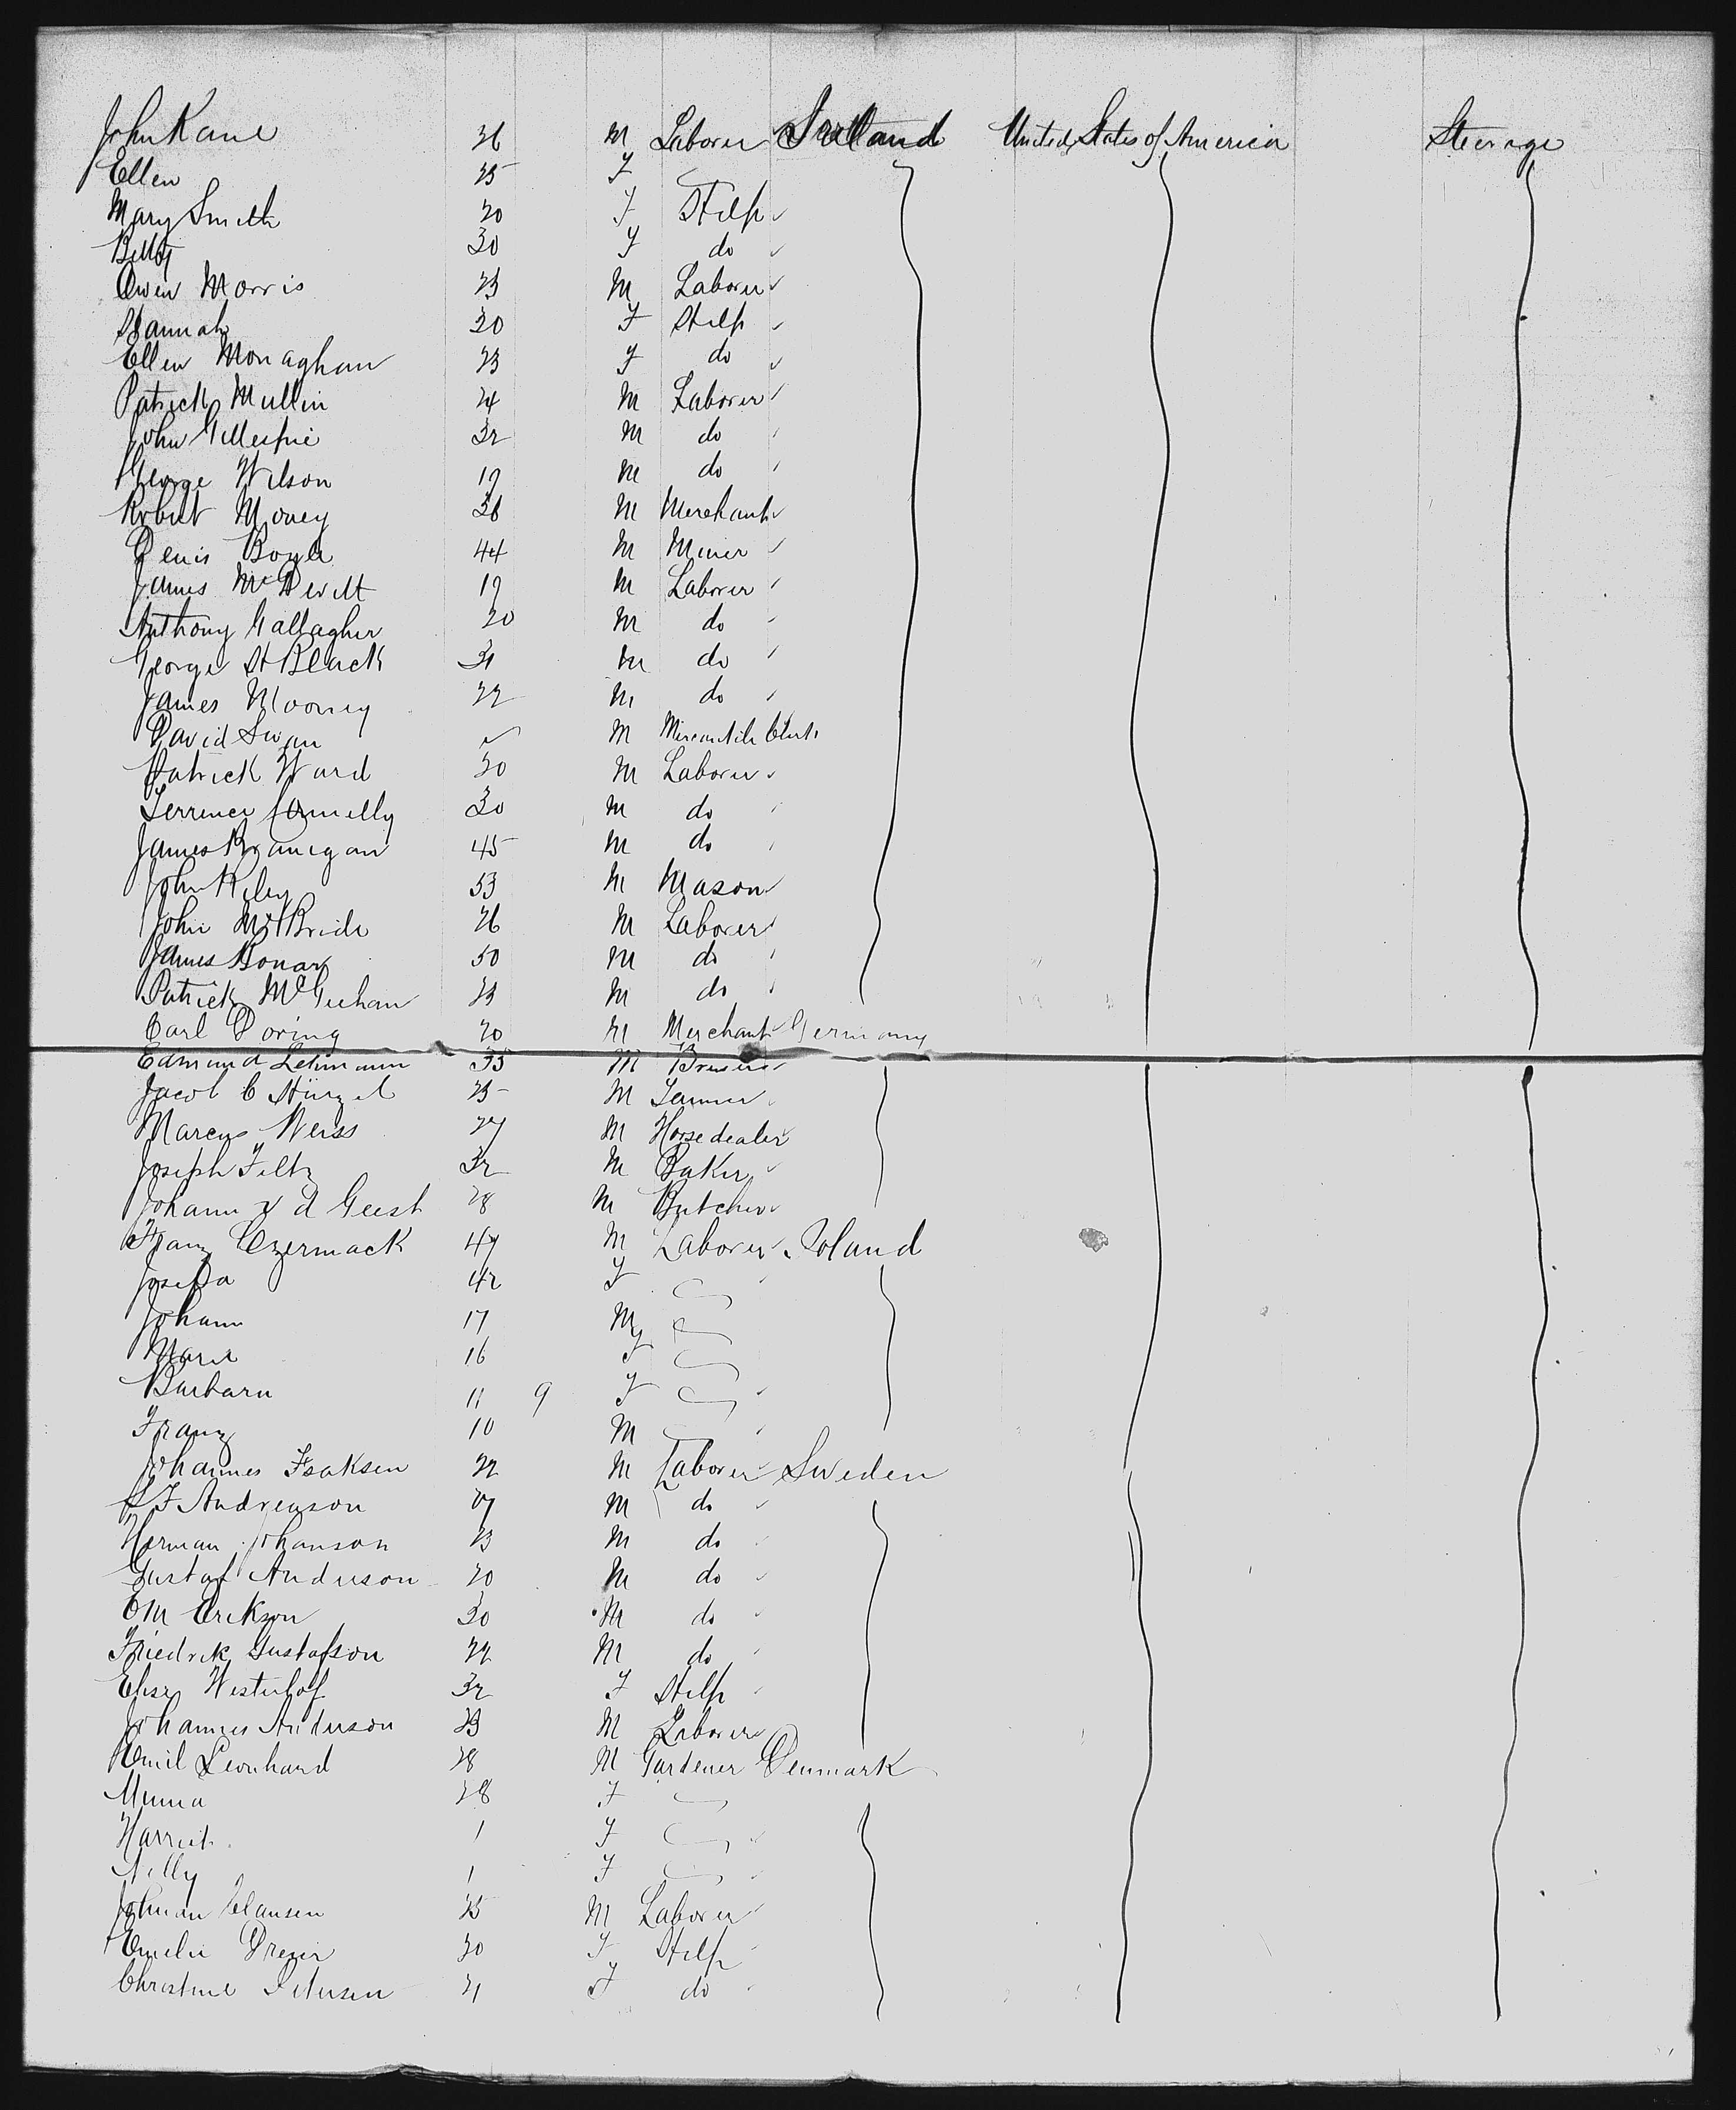 John Kane 26 M Laborer Ireland United States of America Steerage
Ellen 25 F
Mary Smith 20 F Help
Betty 30 F do
Owen Morris 23 M Laborer
Hannah 20 F Help
Ellen Monaghan 23 F do
Patrick Mullin 24 M Laborer
John Gillespie 32 M do
George Wilson 19 M do
Robert Money 36 M Merchant
Denis Boyle 44 M Miner
James McDevitt 19 M Laborer
Anthony Gallagher 20 M do
George H Black 31 M do
James Mooney 22 M do
David Swan M Mercantile Clerk
Patrick Ward 30 M Laborer
Terrence Connelly 30 M do
James Branigan 45 M do
John Riley 53 M Mason
John McBride 26 M Laborer
James Bonar 50 M do
Patrick McGeehan 23 M do
Carl Doring 20 M Merchant Germany
Edmund Lehmann 35 M
Jacob C 25 M Tanner
Marcus Weiss 27 M Horsedealer
Joseph Feltz 32 M Baker
Johann v d Geest 28 M Butcher
Franz Czermack 47 M Laborer Poland
Josefa 42 F
Johann 17 M
Marie 16 F
Barbara 11 9 F
Franz 10 M
Johannes Isaksen 22 M Laborer Sweden
Andreasson 27 M do
Herman Johanson 23 M do
Gustaf Anderson 20 M do
Erikson 30 M do
Friedrik Gustafson 22 M do
Elise Westerlof 32 F Help
Johannes Anderson 23 M Laborer
Emil Leonhard 28 M Gardener Denmark
Minna 28 F
Harriet 1 F
Nilly 1 F
Johman Clausen 25 M Laborer
Emilie Dreyer 30 F Help
Christine Petersen 21 F do